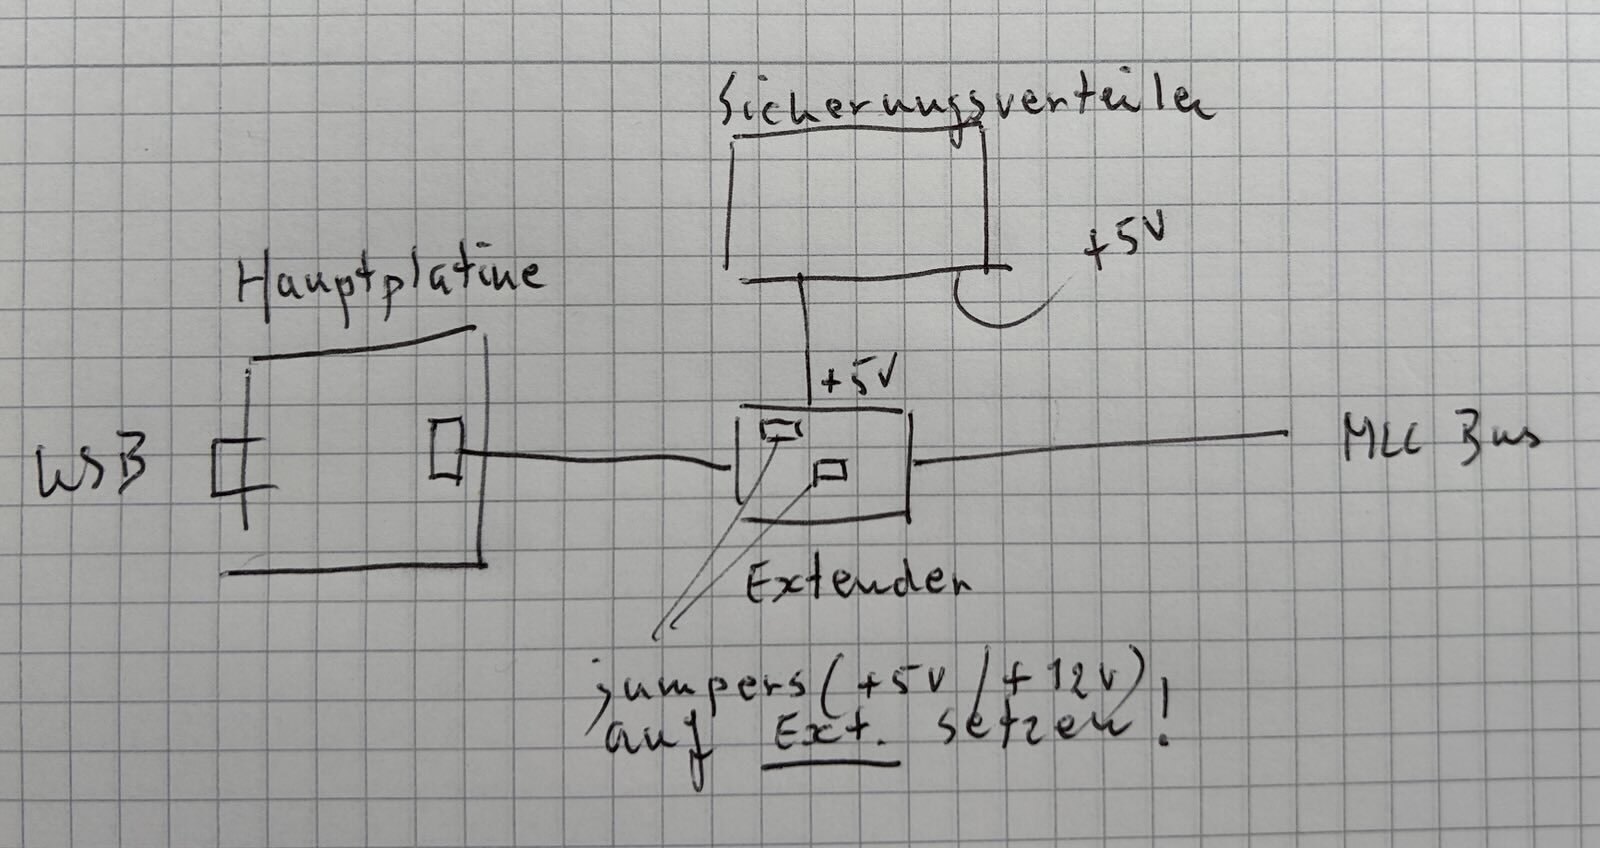 Sicherungsverteiler
+5V
Hauptplatine
+5V
USB
MLC Bus
Extender
jumpers (+5V / +12V)
auf Ext. setzen!